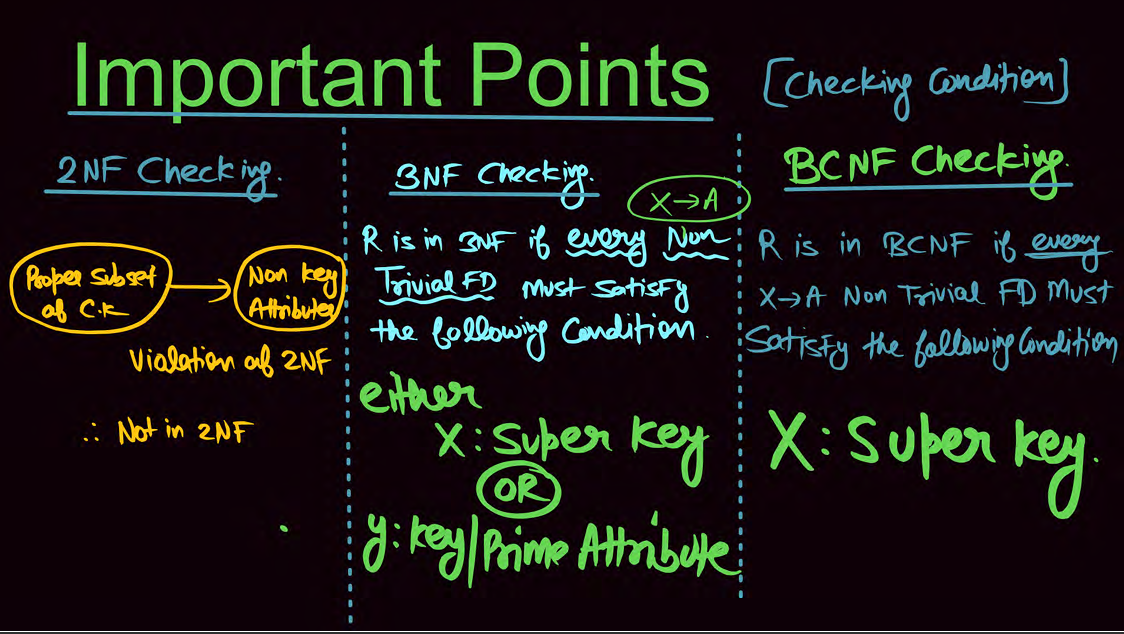 Important Points
[Checking Condition]
2NF Checking.
Proper Subset
of C.K
Non Key
Attributes
Violation of 2NF
∴ Not in 2NF
3NF Checking.
X→A
R is in 3NF if every Non
Trivial FD Must Satisfy
the following Condition.
either
X: Super Key
OR
y: Key/Prime Attribute
BCNF Checking.
R is in BCNF if every
X→A Non Trivial FD Must
Satisfy the following Condition
X: Super key.